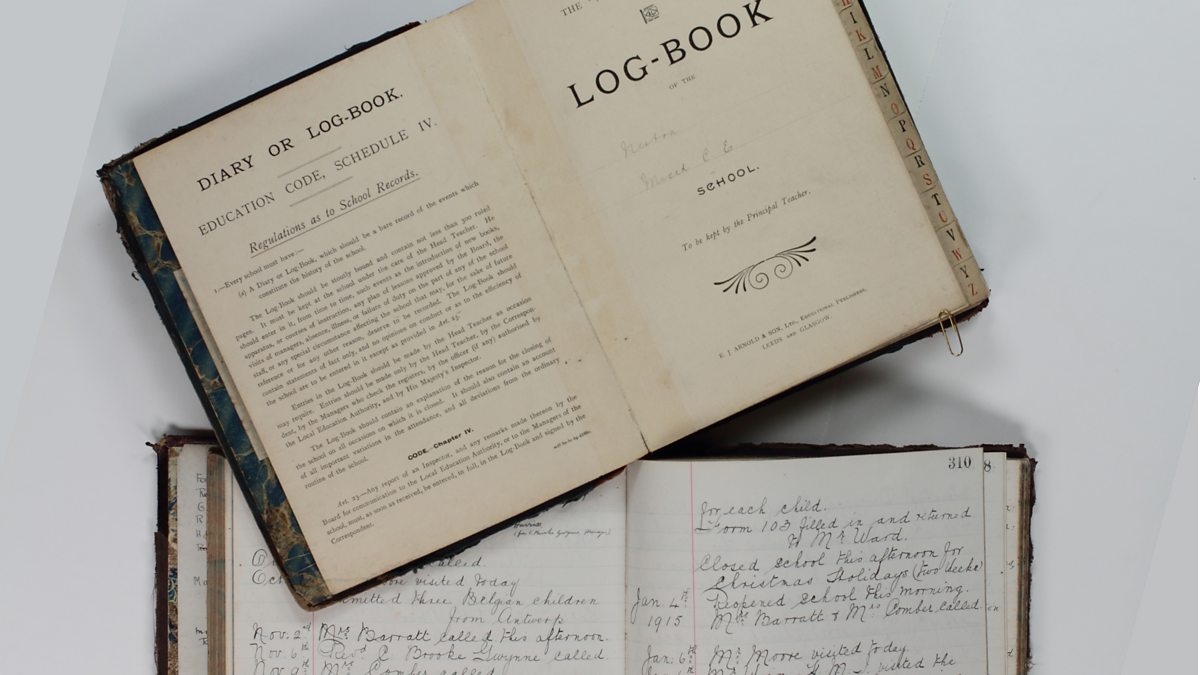 DIARY OR LOG-BOOK.
EDUCATION CODE, SCHEDULE IV.
Regulations as to School Records.
1.—Every school must have:—
(a) A Diary or Log-Book, which should be a bare record of the events which
constitute the history of the school.
The Log-Book should be stoutly bound and contain not less than 300 ruled
pages. It must be kept at the school under the care of the Head Teacher. He
should enter in it, from time to time, such events as the introduction of new books,
apparatus, or courses of instruction, any plan of lessons approved by the Board, the
visits of managers, absence, illness, or failure of duty on the part of any of the school
staff, or any special circumstance affecting the school that may, for the sake of future
reference or for any other reason, deserve to be recorded. The Log-Book should
contain statements of fact only, and no opinions on conduct or as to the efficiency of
the school are to be entered in it except as provided in Art. 23.
Entries in the Log-Book should be made by the Head Teacher as occasion
may require. Entries should be made only by the Head Teacher, by the Correspon-
dent, by the Managers who check the registers, by the officer (if any) authorised by
the Local Education Authority, and by His Majesty's Inspector.
The Log-Book should contain an explanation of the reason for the closing of
the school on all occasions on which it is closed. It should also contain an account
of all important variations in the attendance, and all deviations from the ordinary
routine of the school.
CODE.—Chapter IV.
Art. 23.—Any report of an Inspector, and any remarks made thereon by the
Board for communication to the Local Education Authority, or to the Managers of the
school, must, as soon as received, be entered, in full, in the Log-Book and signed by the
Correspondent.
THE
LOG-BOOK
OF THE
Newton
Mixed C E
SCHOOL.
To be kept by the Principal Teacher.
E. J. ARNOLD & SON, LTD., EDUCATIONAL PUBLISHERS,
LEEDS AND GLASGOW.
I
K
L
M
N
O
P
Q
R
S
T
U
V
W
Y
Z
called.
visited today
three Belgian children
from Antwerp
Nov. 2nd Mrs. Barratt called this afternoon.
Nov. 6th Revd. C. Brooke Gwynne called.
Nov. 9th Mrs. Comber called.
310
8
for each child.
Form 103 filled in and returned
to Mr Ward.
Closed School this afternoon for
Christmas Holidays (two weeks)
Jan. 4th Reopened School this morning.
1915 Mrs Barratt & Mrs Comber called.
Jan. 6th Mr. Moore visited today.
visited the